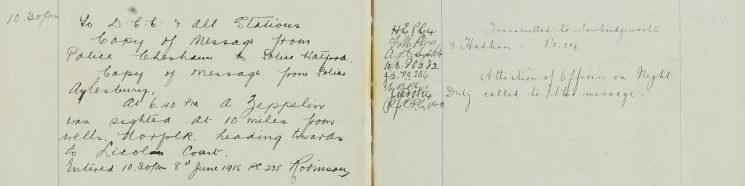 10.30pm
To D.C.C & All Stations
Copy of Message from
Police Chesham to Police Watford.
Copy of message from Police
Aylesbury.
At 6.40 PM A Zeppelin
was sighted at 10 miles from
wells, Norfolk, heading towards
to Lincoln Coast.
Entered 10.30pm 8th June 1915 PC 235 Robinson
Transmitted to Sawbridgeworth
& Hadham. Pc. 214.
Attention of Officers on Night
Duty called to this message.